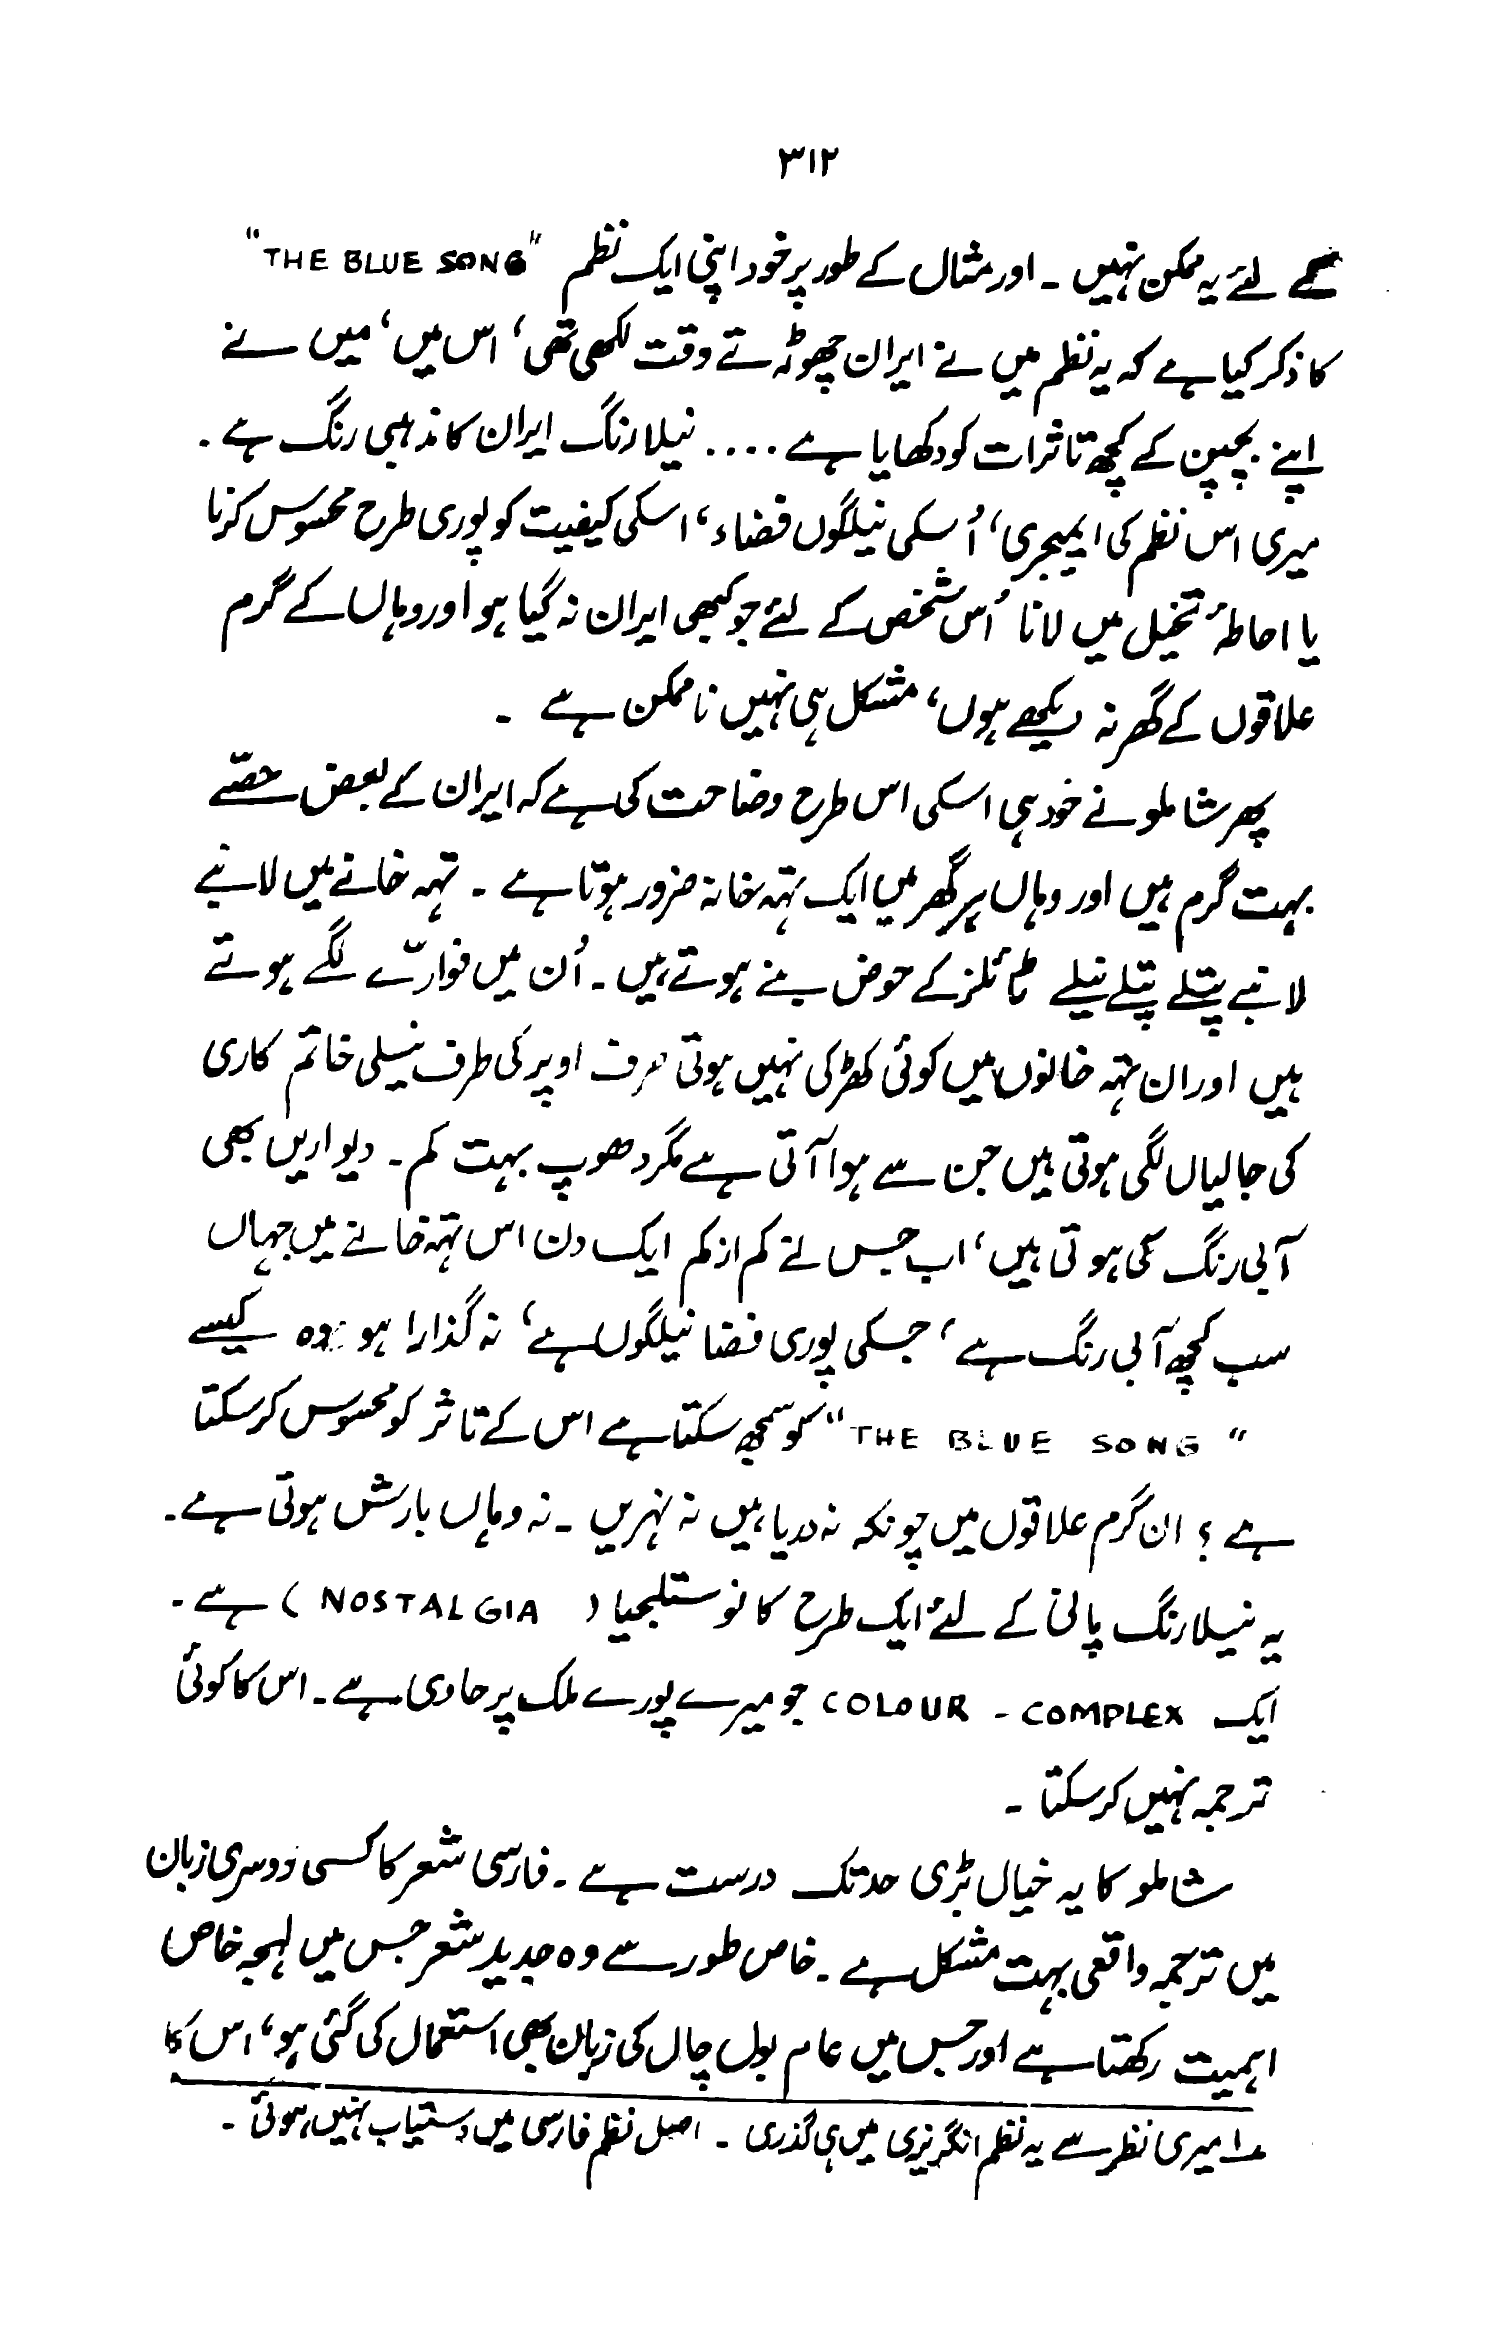 ۳۱۲
کے لئے یہ ممکن نہیں ۔ اور مثال کے طور پر خود اپنی ایک نظم "THE BLUE SONG"
کا ذکر کیا ہے کہ یہ نظم میں نے ایران چھوڑتے وقت لکھی تھی، اس میں، میں نے
اپنے بچپن کے کچھ تاثرات کو دکھایا ہے .... نیلا رنگ ایران کا مذہبی رنگ ہے ۔
میری اس نظم کی ایمیجری، اُسکی نیلگوں فضاء، اسکی کیفیت کو پوری طرح محسوس کرنا
یا احاطۂ تخیل میں لانا اُس شخص کے لئے جو کبھی ایران نہ گیا ہو اور وہاں کے گرم
علاقوں کے گھر نہ دیکھے ہوں، مشکل ہی نہیں نا ممکن ہے ۔
پھر شاملو نے خود ہی اسکی اس طرح وضاحت کی ہے کہ ایران کے بعض حصّے
بہت گرم ہیں اور وہاں ہر گھر میں ایک تہہ خانہ ضرور ہوتا ہے ۔ تہہ خانے میں لانبے
لانبے پتلے پتلے نیلے ٹائلز کے حوض بنے ہوتے ہیں ۔ اُن میں فوارّے لگے ہوتے
ہیں اور ان تہہ خانوں میں کوئی کھڑکی نہیں ہوتی صرف اوپر کی طرف نیلی خاتم کاری
کی جالیاں لگی ہوتی ہیں جن سے ہوا آتی ہے مگر دھوپ بہت کم ۔ دیواریں بھی
آبی رنگ کی ہوتی ہیں، اب جس نے کم از کم ایک دن اس تہہ خانے میں جہاں
سب کچھ آبی رنگ ہے، جسکی پوری فضا نیلگوں ہے، نہ گذارا ہو وہ کیسے
"THE BLUE SONG" کو سمجھ سکتا ہے اس کے تاثر کو محسوس کرسکتا
ہے ؟ ان گرم علاقوں میں چونکہ نہ دریا ہیں نہ نہریں ۔ نہ وہاں بارش ہوتی ہے ۔
یہ نیلا رنگ پانی کے لئے ایک طرح کا نوستلجیا ( NOSTALGIA ) ہے ۔
ایک COLOUR - COMPLEX جو میرے پورے ملک پر حاوی ہے ۔ اس کا کوئی
ترجمہ نہیں کرسکتا ۔
شاملو کا یہ خیال بڑی حد تک درست ہے ۔ فارسی شعر کا کسی دوسری زبان
میں ترجمہ واقعی بہت مشکل ہے ۔ خاص طور سے وہ جدید شعر جس میں لہجہ خاص
اہمیت رکھتا ہے اور جس میں عام بول چال کی زبان بھی استعمال کی گئی ہو، اس کا
۱؎ میری نظر سے یہ نظم انگریزی میں ہی گذری ۔ اصل نظم فارسی میں دستیاب نہیں ہوئی ۔